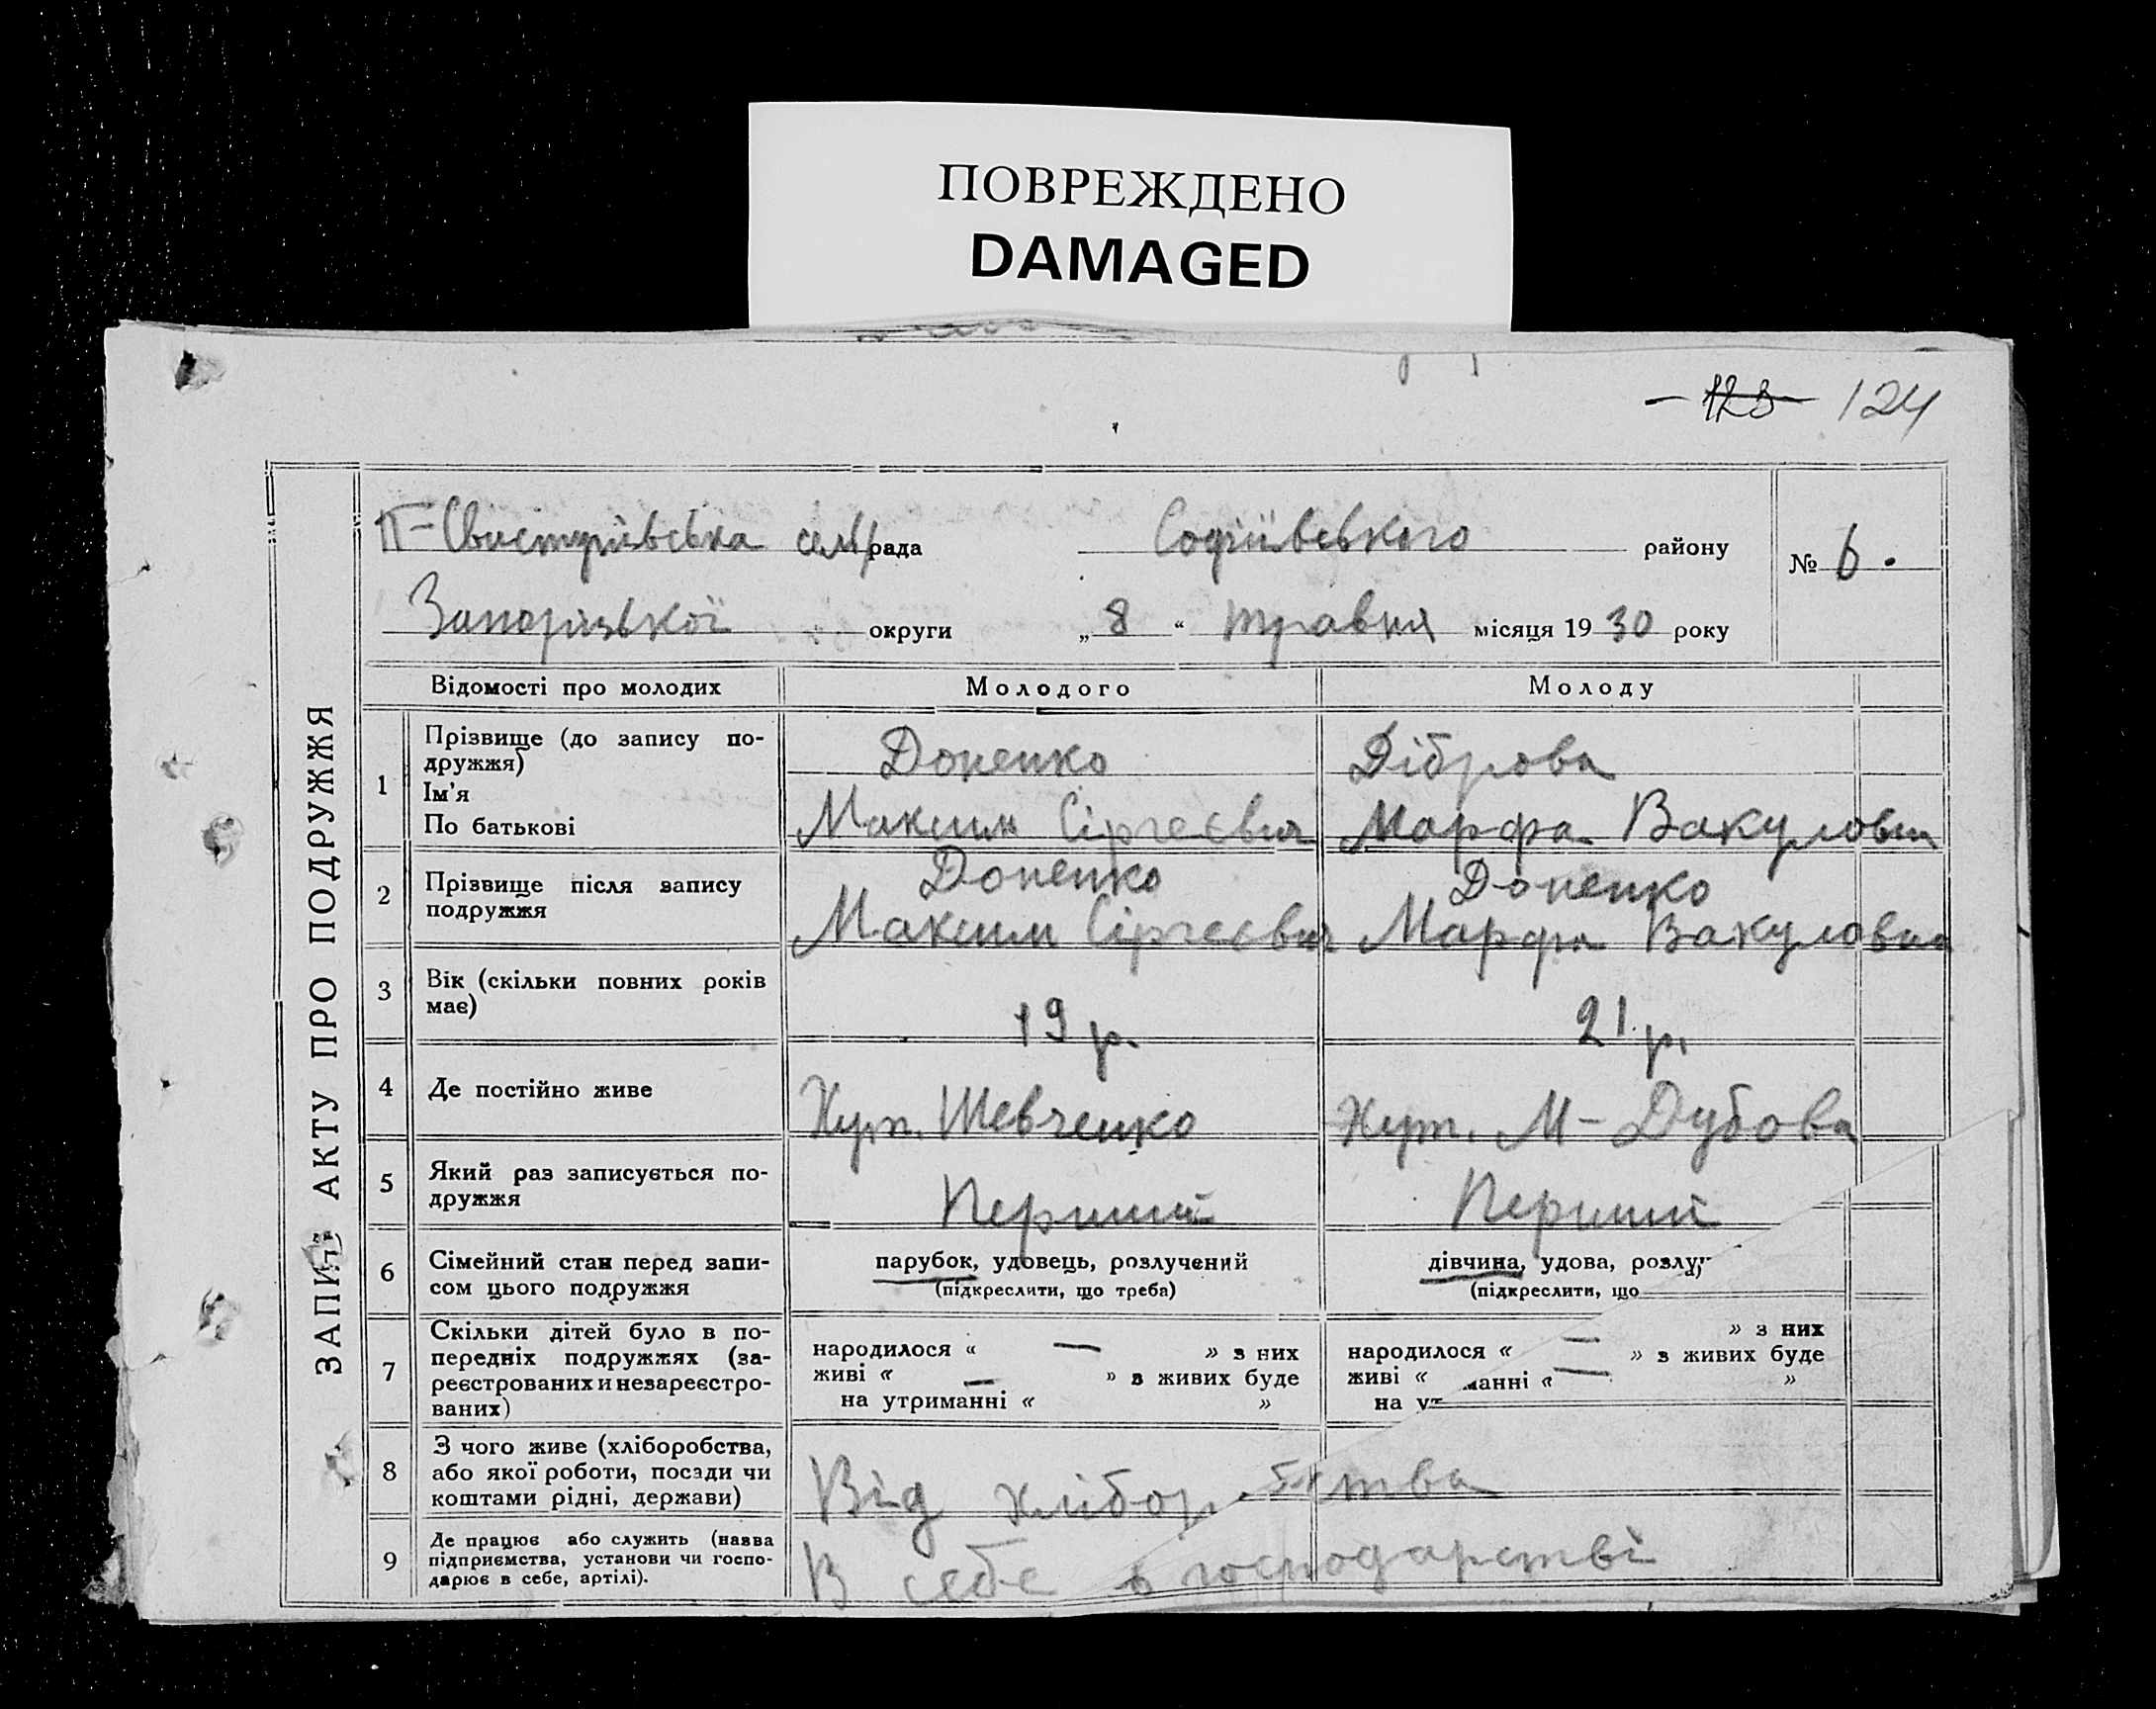 ПОВРЕЖДЕНО
DAMAGED
123 124
ЗАПИС АКТУ ПРО ПОДРУЖЖЯ
П-Свистунівська сельрада Софіївського району № 6.
Запорізької округи „ 8 “ травня місяця 19 30 року
Відомості про молодих Молодого Молоду
1 Прізвище (до запису по-
дружжя) Доненко Діброва
Ім'я
По батькові Максим Сіргеєвич Марфа Вакуловна
2 Прізвище після запису
подружжя Доненко Максим Сіргеєвич Доненко Марфа Вакуловна
3 Вік (скільки повних років
має) 19 р. 21 р.
4 Де постійно живе Хут. Шевченко Хут. М-Дубова
5 Який раз записується по-
дружжя Перший Перший
6 Сімейний стан перед запи-
сом цього подружжя
парубок, удовець, розлучений дівчина, удова, розлу
(підкреслити, що треба) (підкреслити, що
7 Скільки дітей було в по-
передніх подружжях (за-
реєстрованих и незареєстро-
ваних)
народилося « — » з них народилося « — » з них
живі « — » в живих буде живі « » з живих буде
на утриманні « » на ут манні « — »
8 З чого живе (хліборобства,
або якої роботи, посади чи
коштами рідні, держави) Від хліборобства
9 Де працює або служить (назва
підприємства, установи чи госпо-
дарює в себе, артілі). В себе в господарстві